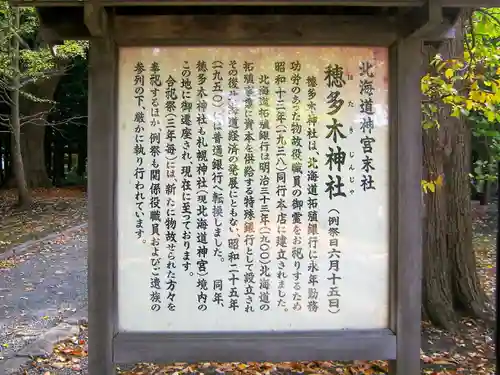 北海道神宮末社
穂多木神社
ほたきじんじゃ
（例祭日六月十五日）
穂多木神社は、北海道拓殖銀行に永年勤務
功労のあった物故役職員の御霊をお祀りするため
昭和十三年（一九三八）同行本店に建立されました。
北海道拓殖銀行は明治三十三年（一九〇〇）北海道の
拓殖事業に資本を供給する特殊銀行として設立され
その後北海道経済の発展にともない、昭和二十五年
（一九五〇）には普通銀行へ転換しました。　同年、
穂多木神社も札幌神社（現北海道神宮）境内の
この地に御遷座されて今日に至っております。
合祀祭（三年毎）には、新たに物故せられた方々を
奉祀するほか、例祭も関係役職員およびご遺族の
参列の下、厳かに執り行われています。